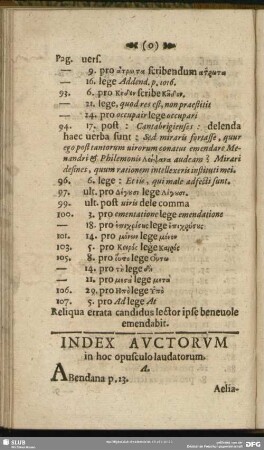 (o)
Pag. uers.
— 9. pro ἄτρωτα scribendum ἄτρωτα
— 16. lege Addend. p. 1016.
93. 6. pro scribe
— 21. lege, quod res est, non praestitit
— 24. pro occupair lege occupair
94. 17. post: Cantabrigienses: delenda
haec uerba sunt: Sed miraris fortasse, quur
ego post tantorum uirorum conatus emendare Me-
nandri & Philemonis Λείψανα audeam? Mirari
desines, quum rationem intellexeris instituti mei.
96. 6. lege: Et iis, qui male adfecti sunt.
97. ult. pro lege
99. ult. post uiris dele comma
100. 3. pro ementatione lege emendatione
— 18. pro lege
101. 14. pro μόνων lege μόνον
103. 5. pro Καιρὸς lege Καιρός
105. 8. pro lege οὕτω
— 14. pro τὸ lege
— 21. pro μετὰ lege μετὰ
106. 29. pro lege Ὑπὸ
107. 5. pro Ad lege At
Reliqua errata candidus lector ipse beneuole
emendabit.
INDEX AVCTORVM
in hoc opusculo laudatorum.
A.
ABendana p. 13.
Aelia-
SLUB